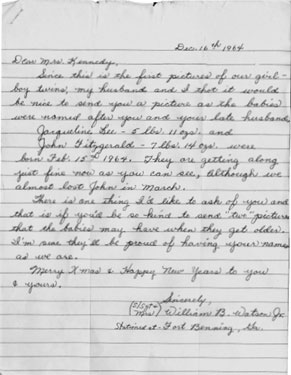 Dec. 16th 1964
Dear Mrs. Kennedy,
Since this is the first pictures of our girl-
boy twins, my husband and I thot it would
be nice to send you a picture as the babies
were named after you and your late husband,
Jacqueline Lee - 5 lbs. 11 ozs. and
John Fitzgerald - 7 lbs. 14 ozs. were
born Feb. 15th 1964. They are getting along
just fine now as you can see, although we
almost lost John in March.
There is one thing I'd like to ask of you and
that is if you'd be so kind to send two pictures
that the babies may have when they get older.
I'm sure they'll be proud of having your names
as we are.
Merry X'mas & Happy New Years to you
& yours.
Sincerely,
(S/Sgt & Mrs) William B. Watson Jr.
Stationed at - Fort Benning, Ga.